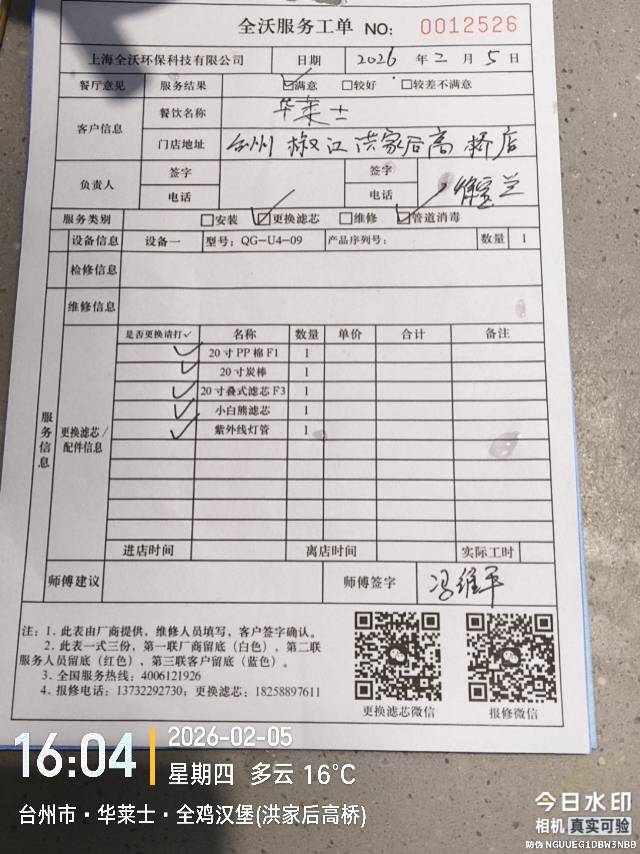 全沃服务工单 NO: 0012526
上海全沃环保科技有限公司 日期 2026 年 2 月 5 日
餐厅意见 服务结果 ☑满意 □较好 □较差不满意
客户信息 餐饮名称 华莱士
门店地址 台州 椒江 洪家后高桥店
负责人 签字 签字
电话 电话
服务类别 □安装 ☑更换滤芯 □维修 ☑管道消毒
设备信息 设备一 型号: QG-U4-09 产品序列号: 数量 1
检修信息
维修信息
服务信息
更换滤芯/配件信息
是否更换请打✓ 名称 数量 单价 合计 备注
✓ 20寸PP棉F1 1
✓ 20寸炭棒 1
✓ 20寸叠式滤芯F3 1
✓ 小白熊滤芯 1
✓ 紫外线灯管 1
进店时间 离店时间 实际工时
师傅建议 师傅签字 冯维平
注: 1. 此表由厂商提供, 维修人员填写, 客户签字确认。
2. 此表一式三份, 第一联厂商留底 (白色), 第二联
服务人员留底 (红色), 第三联客户留底 (蓝色)。
3. 全国服务热线: 4006121926
4. 报修电话: 13732292730; 更换滤芯: 18258897611
更换滤芯微信 报修微信
16:04
2026-02-05
星期四 多云 16℃
台州市·华莱士·全鸡汉堡(洪家后高桥)
今日水印
相机 真实可验
防伪 NGUUEG1DBW3NBB